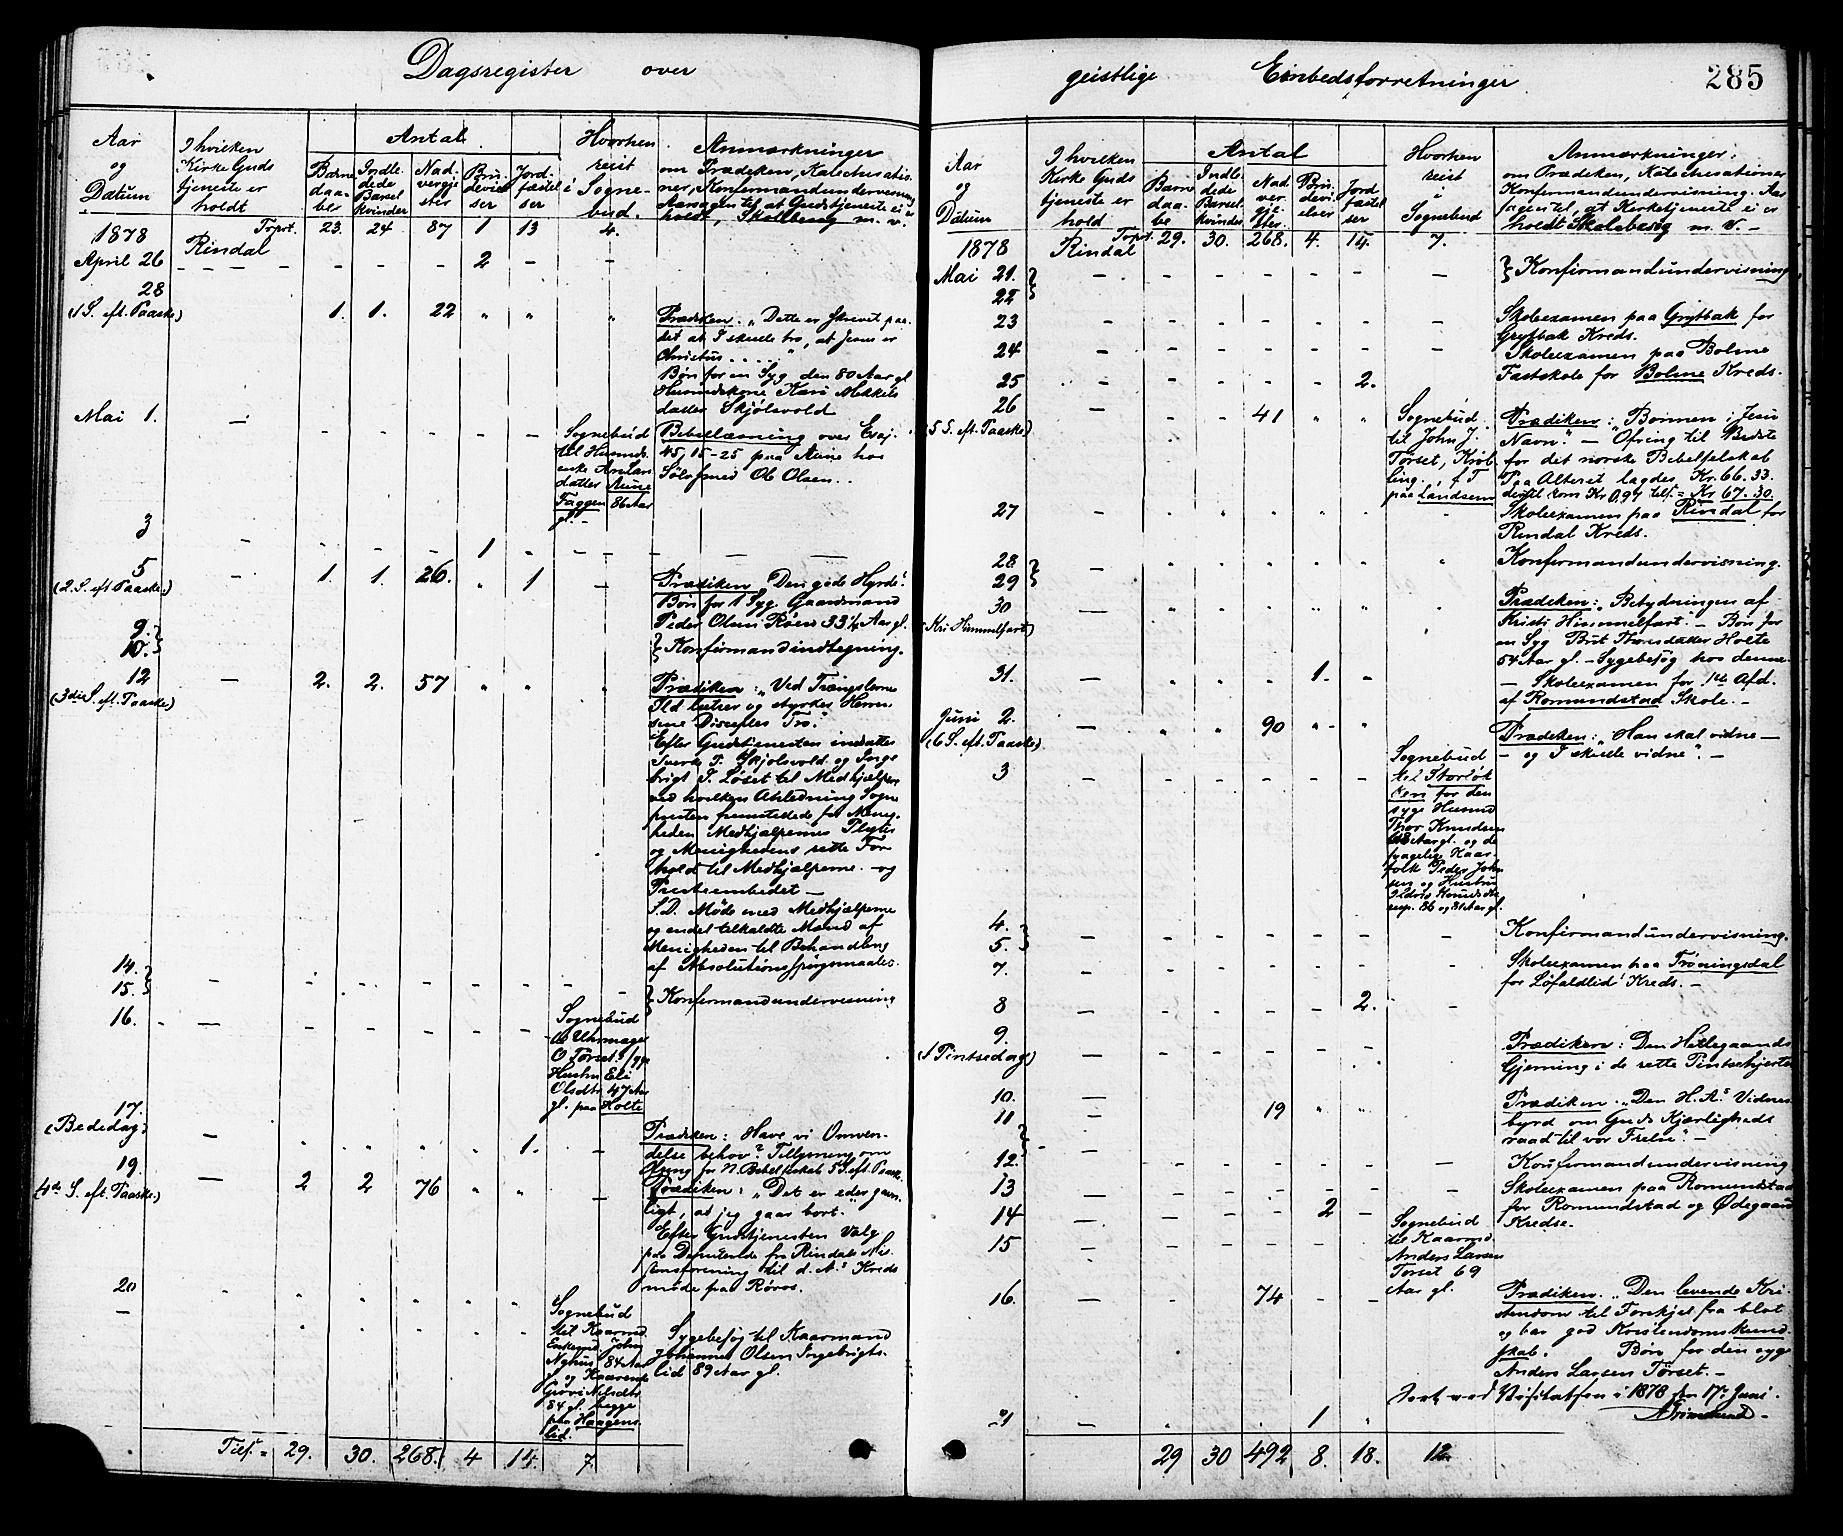 Dagsregister over
geistlige Embedsforretninger
285
Aar og Datum
I hvilken Kirke Gudstjeneste er holdt
Antal
Barnedaaber
Indledede Barselkvinder
Nadvergjester
Brudevielser
Jordfæstelser
Hvorhen reist i Sognebud.
Anmærkninger
om Prædiken, Katechisationer, Konfirmandundervisning
Aarsagen til, at Gudstjeneste ei er
holdt, Skolebesøg m. v.
1878 Rindal Trprt. 23. 24. 87 1 13 4.
April 26 - - - - 2 - -
28
(1 S. eft. Paaske) 1. 1. 22 " " "
Prædiken: "Dette er skrevet paa
det at I skulde tro, at Jesus er
Christus ....."
Bøn for en Syg den 80 Aar gl
Husmdskone Kari Mikkels
datter Skjølsvold
Mai 1.
Sognebud
til Husmds.
Faggen 86 Aar
gl. -
Bibellæsning over Esaj.
45, 15-25 paa Aune hos
Sølvsmed Ob Olsen.
3 - - - - 1 - - -
5
(2. S. eft Paaske.) - 1. 1. 26. " 1 -
Prædiken "Den gode Hyrde".
Bøn for 1 Syg Gaardmand
Peder Olsen Røen 33 ¼ Aar gl.
9.
10.
} Konfirmandindtegning.
12
(3die S. eft. Paaske.) - 2. 2. 57 " " "
Prædiken: "Ved Trængslerne
Ild lutrer og styrkes Herren
sine Disciples Tro."
Efter Gudstjenesten indsattes
Sivert T. Skjølsvold og Inge
brigt J. Løset til Medhjælpere
ved hvilken Anledning Sogne
presten fremstillede for Menig-
heden Medhjælpernes Pligter
og Menighedens rette For
hold til Medhjælperne - og
Presteembedet -
S.D. Møde med Medhjælperne
og endel tilkaldte Mænd af
Menigheden til Behandling
af Absolutionsspørgsmaalet.
14.
15.
} Konfirmandundervisning
16.
Sognebud
til Uhrmager
O Tørsets syge
Hustru Eli
Olsdtr 47 Aar
gl. paa Holte
17.
(Bededag) - 1. -
Prædiken: Have vi Omven-
delse behov? Tillysning om
Ofring for N. Bibelselskab 5 S. eft. Paaske.
19.
(4de S. eft. Paaske.) - 2 2 76 " " -
Prædiken: "Det er eder gavn-
ligt, at jeg gaar bort."
Efter Gudstjenesten Valg
paa Deputerede fra Rindals Mis-
sionsforening til d. A.s Kreds
møde paa Røros.
20
-
Sognebud
til Kaarmd.
Enkemd John
Nyhus 84 Aar
gl. og Kaarenke
Guri Nilsdtr
84 gl. begge
paa Haagens
lid.
Sygebesøg til Kaarmand
Johannes Olsen Ingebrigts-
lid 89 Aar gl.
Tils. = 29. 30. 268. 4 14. 7.
Aar og Datum
I hvilken Kirke Gudstjeneste er hold
Antal
Barnedaabe
Indledede Barselkvinder
Nadvergjester
Brudevielser
Jordfæstelser
Hvorhen reist i Sognebud
Anmærkninger:
om Prædiken, Katechisationer
Konfirmandundervisning. Aar
sagen til, at Kirketjeneste ei er
holdt Skolebesøg m. v. -
1878 Rindal Trprt. 29. 30. 268. 4. 14. 7.
Mai 21.
22
} Konfirmandundervisning
23
Skoleexamen paa Grytbak for
Grytbak Kreds.
24
Skoleexamen paa Bolme
Fastskole for Bolme Kreds.
25 - - - - - 2.
26
(5 S. eft. Paaske) - - - 41 " "
Sognebud
til John J.
Tørset, Krøb-
ling. f T
paa Landsem
Prædiken: "Bønnen i Jesu
Navn." - Ofring til Bedste
for det norske Bibelselskab
Paa Alteret lagdes Kr. 66.33.
dertil kom Kr 0,97 tils. = Kr 67.30.
27
Skoleexamen paa Rindal for
Rindal Kreds.
28
29
Konfirmandundervisning.
30
(Kri Himmelfart)
Prædiken: "Betydningen af
Kristi Himmelfart." - Bøn for
en Syg Brit Thoresdatter Holte
54 Aar gl. - Sygebesøg hos denne
31. - - - - 1. -
- Skoleexamen for 1ste Afd.
af Romundstad Skole. -
Juni 2.
(6 S. eft. Paaske) - " " 90 " "
Prædiken: "Han skal vidne -
- og I skulle vidne". -
3
Sognebud
til Storløk
ken for den
syge Husmd
Thor Knudsen
68 Aar gl. og de
svagelige Kaar-
folk Peder John
sen og Hustru
Ildrid Knudsdtr
resp. 86 og 81 Aar gl.
4.
5.
Konfirmandundervisning.
7.
Skoleexamen paa Trøningsdal
for Løfaldlid Kreds. -
8 - 2. -
9.
(1 Pintsedag)
Prædiken: Den Helligaands
Gjerning i de rette Pintsehjerter
10. 19 " "
Prædiken. "Den H. A.s Vidnes
byrd om Guds Kjærligheds
raad til vor Frelse". -
11
12.
Konfirmandundervisning
13
Skoleexamen paa Romundstad
for Romundstad og Ødegaard
Kredse.
14 - - - - 2 -
15
Sognebud
til Kaarmd.
Anders Larsen
Tørset 69
Aar gl.
16. 74 - -
Prædiken. "Den levende Kri-
stendom til Forskjel fra blot
og bar god Kristendomskund-
skab. Bøn for den syge
Anders Larsen Tørset. -
Seet ved Visitatsen i 1878 den 17de Juni.
Grimelund -
21 - 1
29 30 492 8. 18. 12.